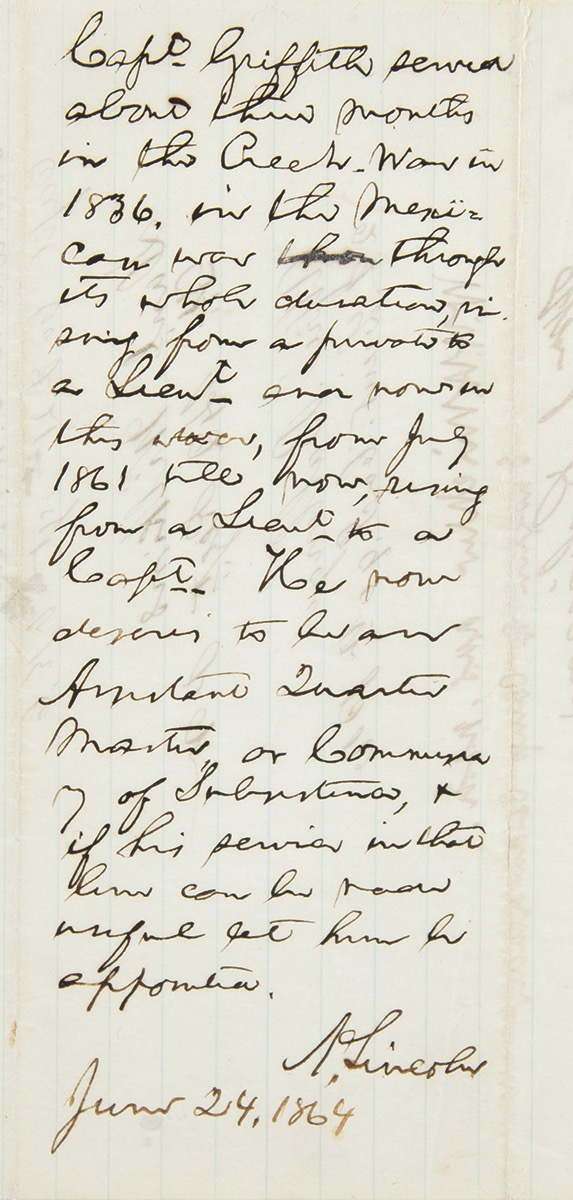 Capt. Griffith served
about three months
in the Creek-War in
1836, in the Mexi=
can war through
its whole duration, ri-
sing from a private to
a Lieut. and now in
this war, from July
1861 till now, rising
from a Lieut. to a
Capt. He now
desires to be an
Assistant Quarter
Master, or Commissa
ry of Subsistence, &
if his service in that
line can be made
useful let him be
appointed.
A. Lincoln
June 24, 1864